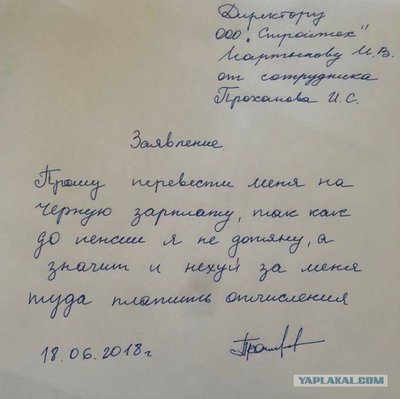 Директору
ООО "Стройтех"
Мартынову М.В.
от сотрудника
Проханова И.С.
Заявление.
Прошу перевести меня на
черную зарплату, так как
до пенсии я не дотяну, а
значит и нехуй за меня
туда платить отчисления
18.06.2018г
YAPLAKAL.COM